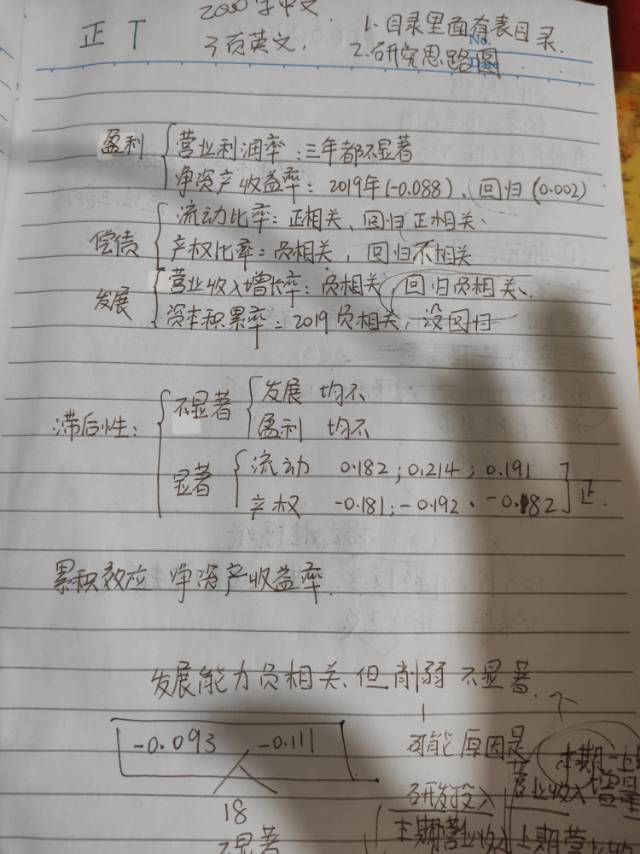 正丁
2000字中文.
3页英文.
1. 目录里面有表目录.
2. 研究思路图
盈利
营业利润率:三年都不显著
净资产收益率: 2019年(-0.088)、回归(0.002)
偿债
流动比率:正相关、回归正相关、
产权比率:负相关, 回归不相关
发展
营业收入增长率:负相关, 回归负相关、
资本积累率:2019负相关, 没回归
滞后性:
不显著
发展 均不
盈利 均不
显著
流动 0.182;0.214;0.191
产权 -0.181;-0.192、-0.182
正.
累积效应 净资产收益率.
发展能力负相关、但削弱 不显著.
-0.093 -0.111
18
不显著
可能原因是
研发投入
本期营业收入
营业收入增量
上期营业收